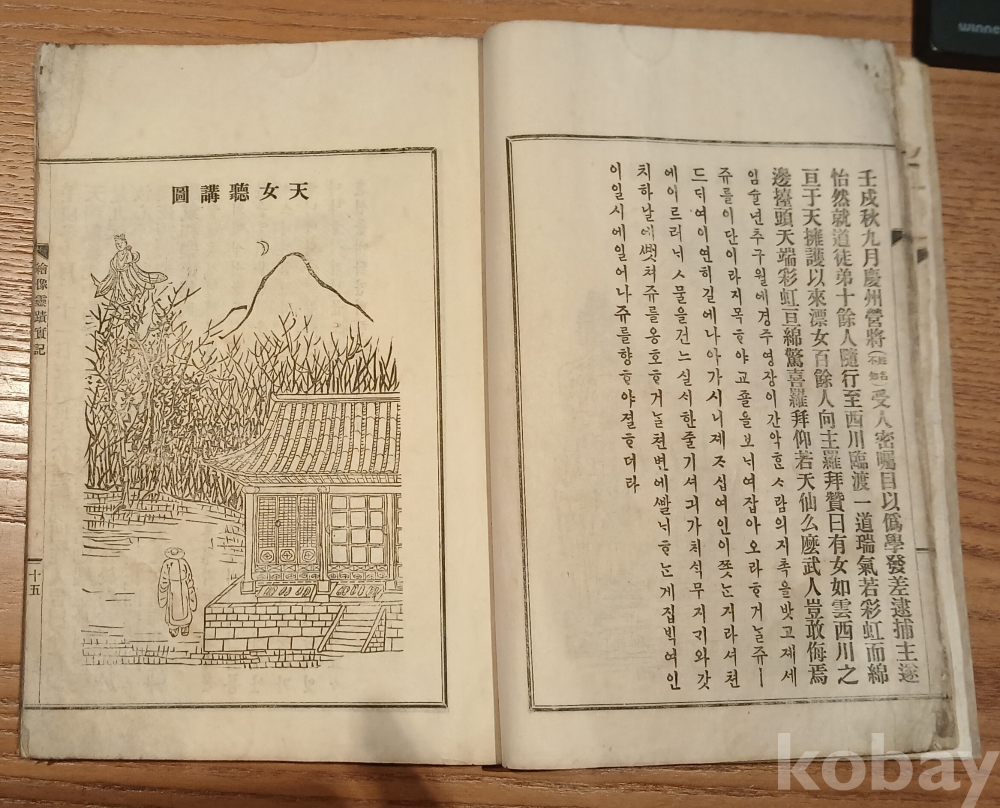 壬戌秋九月慶州營將受人密囑目以僞學發差逮捕主遂
怡然就道徒弟十餘人隨行至西川臨渡一道瑞氣若彩虹而綿
亘于天擁護以來漂女百餘人向主羅拜贊曰有女如雲西川之
邊擡頭天端彩虹亘綿驚喜羅拜仰若天仙么麽武人豈敢侮焉
임슐년츄구월에경쥬영장이간악ᄒᆞᆫᄉᆞ람의지촉을밧고졔세
쥬를이단이라지목ᄒᆞ야교졸을보ᄂᆡ여잡아오라ᄒᆞ거ᄂᆞᆯ쥬ㅣ
드ᄃᆡ여이연히길에나아가시니졔ᄌᆞ십여인이ᄶᅩᆺᄂᆞᆫ지라셔쳔
에이르러물을건느실한줄기셔긔가무지와갓
치하날에ᄲᅥᆺ쳐쥬를옹호ᄒᆞ거ᄂᆞᆯ쳔변에ᄲᅡᆯᄂᆡᄒᆞᄂᆞᆫ계집ᄇᆡᆨ여인
이일시에일어나쥬를향ᄒᆞ야졀ᄒᆞ더라
天女聽講圖
繪像靈蹟實記
十五
kobay